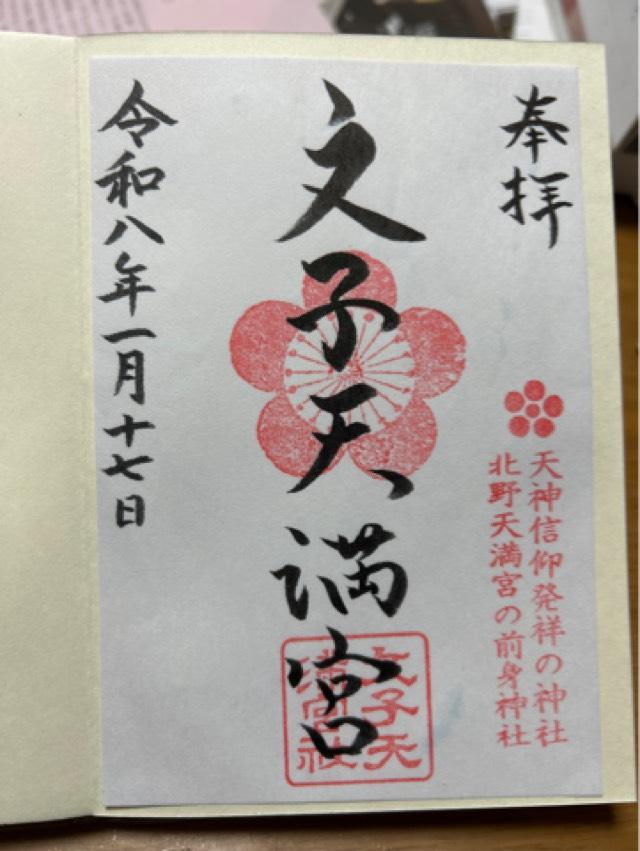 奉拝
天神信仰発祥の神社
北野天満宮の前身神社
文子天満宮
文子天
満宮社
令和八年一月十七日